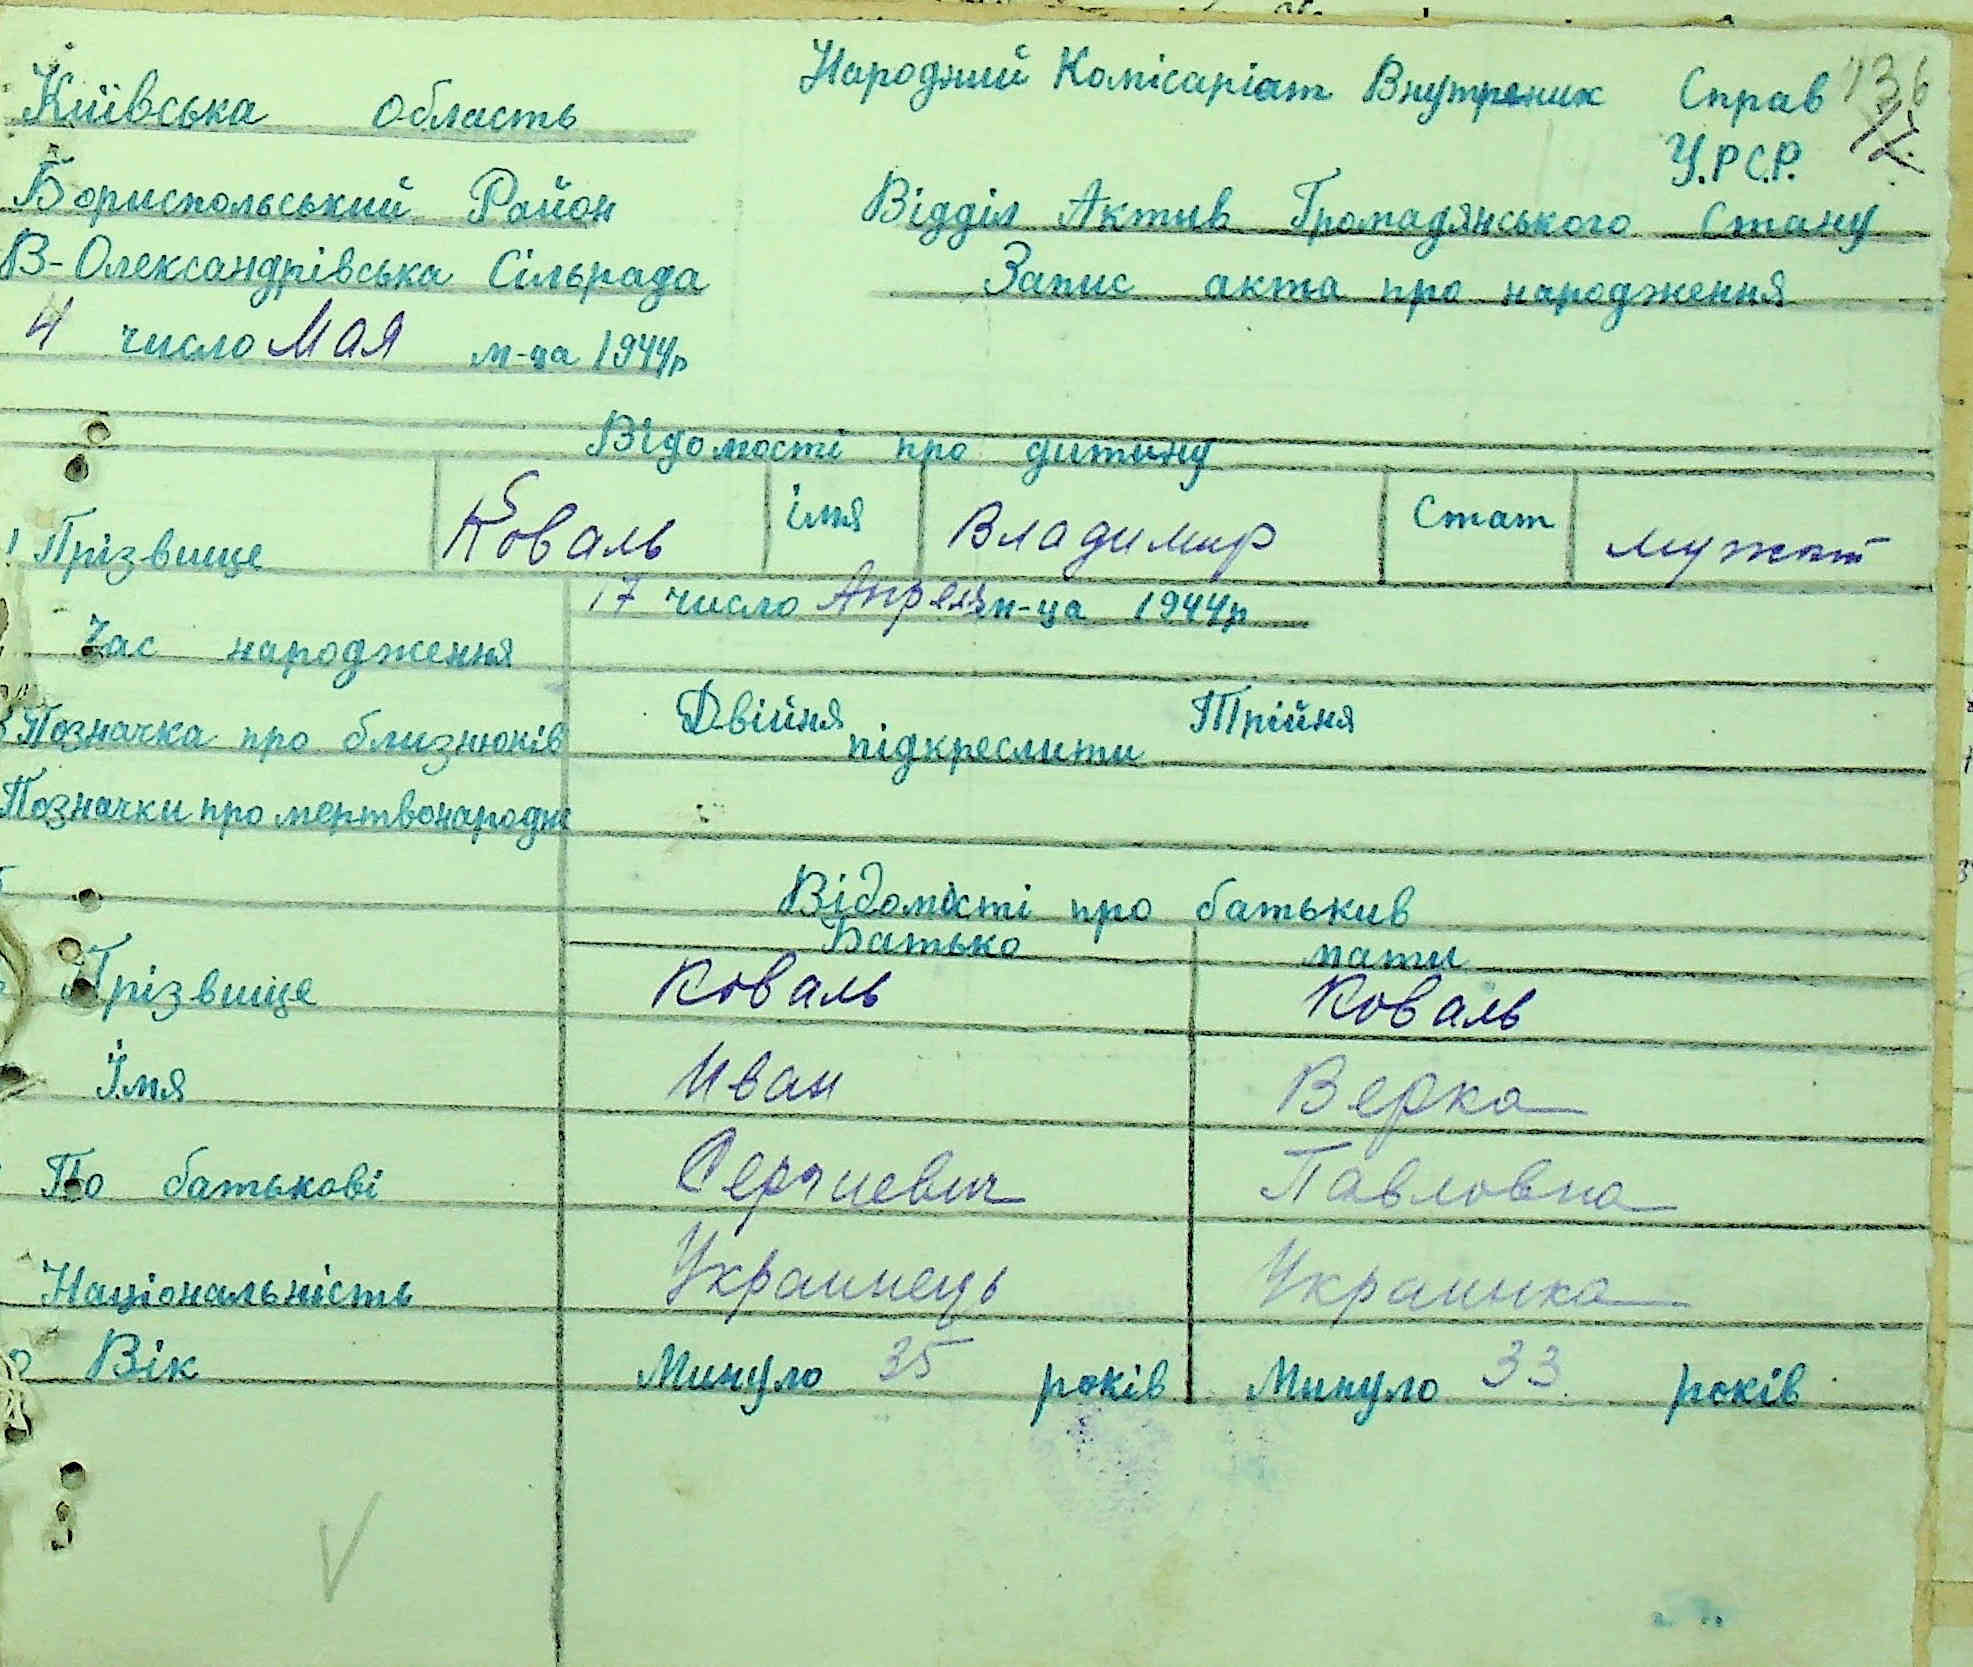 Київська область
Народний Комісаріат Внутрених Справ
У.Р.С.Р.
136
17.
Бориспольський Район
Відділ Актив Громадянського Стану
В-Олександрівська Сільрада
Запис акта про народження
4 число Мая м-ца 1944р
Відомості про дитину
1 Прізвище Коваль імя Владимир Стат
Час народження 17 число Апреля м-ца 1944р
3 Позначка про близнюків Двійня Трійня
підкреслити
Позначки про мертвонародж
Відомости про батькив
Батько мати
Прізвище Коваль Коваль
Імя Иван Верка
По батькові Сергиевич Павловна
Національність Украинець Украинка
Вік Минуло 35 років Минуло 33 років